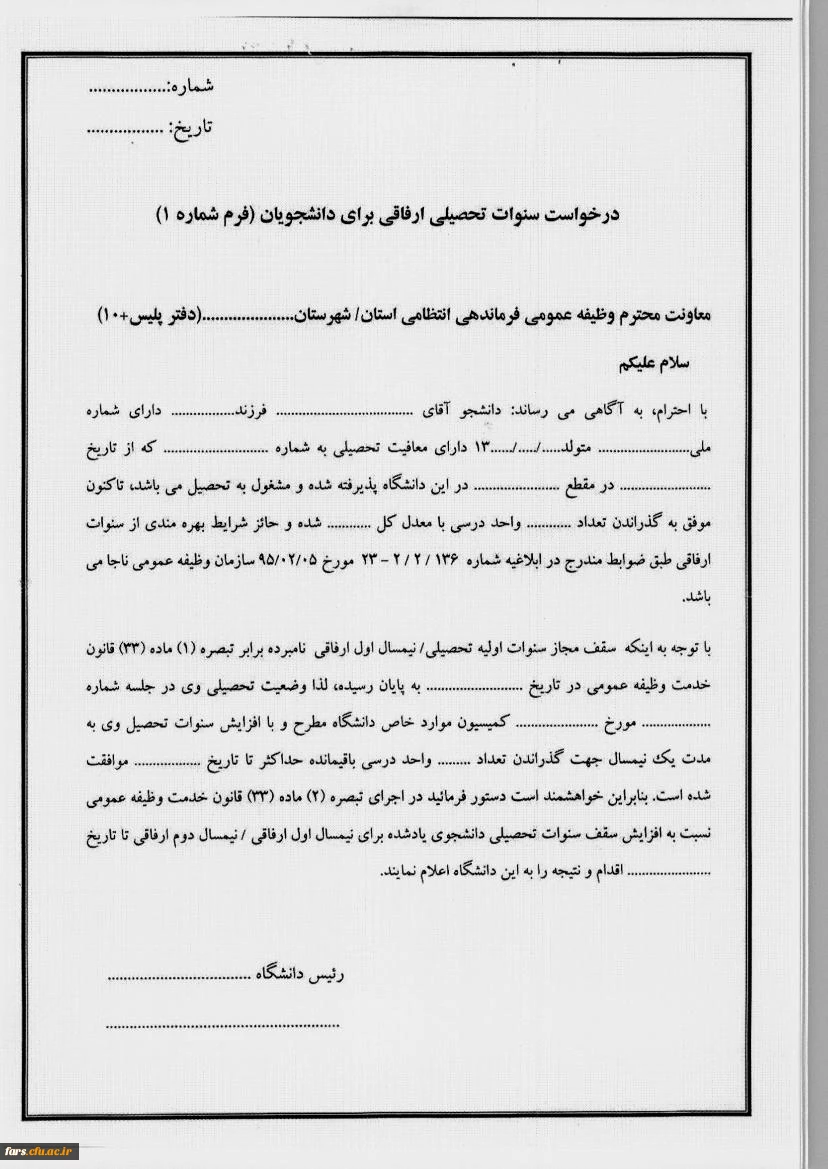 شماره:.................
تاریخ: .................
درخواست سنوات تحصیلی ارفاقی برای دانشجویان (فرم شماره ۱)
معاونت محترم وظیفه عمومی فرماندهی انتظامی استان/ شهرستان.....................(دفتر پلیس+۱۰)
سلام علیکم
با احترام، به آگاهی می رساند: دانشجو آقای .................................. فرزند................ دارای شماره
ملی....................... متولد...../...../.....۱۳ دارای معافیت تحصیلی به شماره .......................... که از تاریخ
....................... در مقطع ..................... در این دانشگاه پذیرفته شده و مشغول به تحصیل می باشد، تاکنون
موفق به گذراندن تعداد ........... واحد درسی با معدل کل ........... شده و حائز شرایط بهره مندی از سنوات
ارفاقی طبق ضوابط مندرج در ابلاغیه شماره ۱۳۶ / ۲ / ۲ - ۲۳ مورخ ۹۵/۰۲/۰۵ سازمان وظیفه عمومی ناجا می
باشد.
با توجه به اینکه سقف مجاز سنوات اولیه تحصیلی/ نیمسال اول ارفاقی نامبرده برابر تبصره (۱) ماده (۳۳) قانون
خدمت وظیفه عمومی در تاریخ ........................ به پایان رسیده، لذا وضعیت تحصیلی وی در جلسه شماره
................. مورخ ..................... کمیسیون موارد خاص دانشگاه مطرح و با افزایش سنوات تحصیل وی به
مدت یک نیمسال جهت گذراندن تعداد ........ واحد درسی باقیمانده حداکثر تا تاریخ ................. موافقت
شده است. بنابراین خواهشمند است دستور فرمائید در اجرای تبصره (۲) ماده (۳۳) قانون خدمت وظیفه عمومی
نسبت به افزایش سقف سنوات تحصیلی دانشجوی یادشده برای نیمسال اول ارفاقی / نیمسال دوم ارفاقی تا تاریخ
..................... اقدام و نتیجه را به این دانشگاه اعلام نمایند.
رئیس دانشگاه ................................
....................................................
fars.cfu.ac.ir